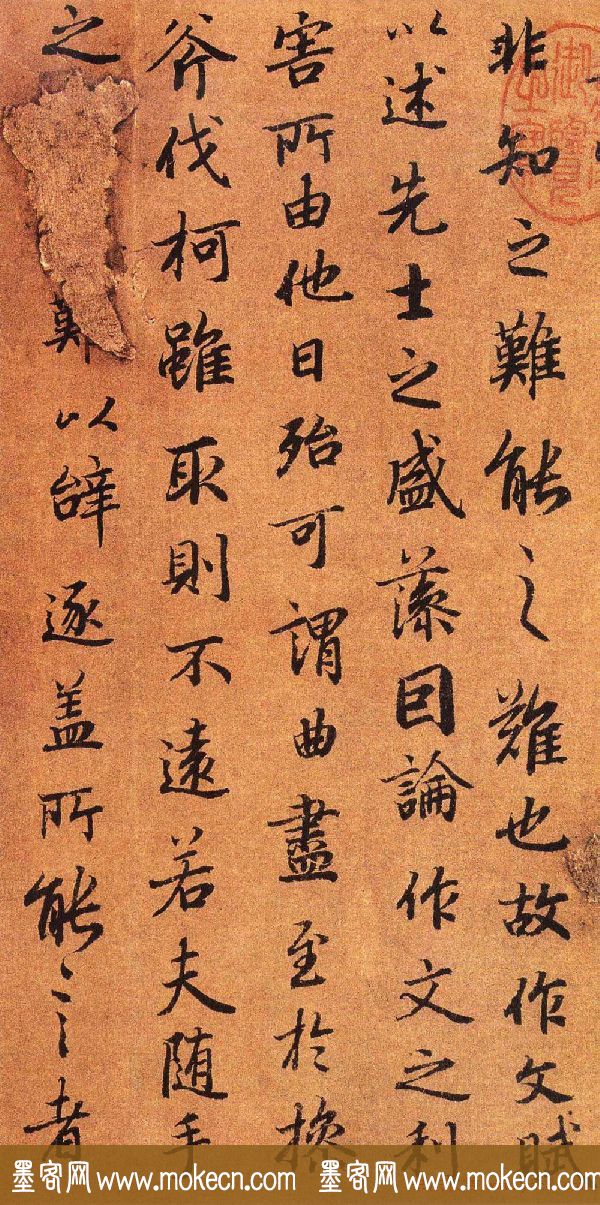 非知之難能之難也故作文賦
以述先士之盛藻因論作文之利
害所由他日殆可謂曲盡至於操
斧伐柯雖取則不遠若夫随手
之難以辭逐盖所能言者
墨客网 www.mokecn.com 墨客网 www.mokecn.com